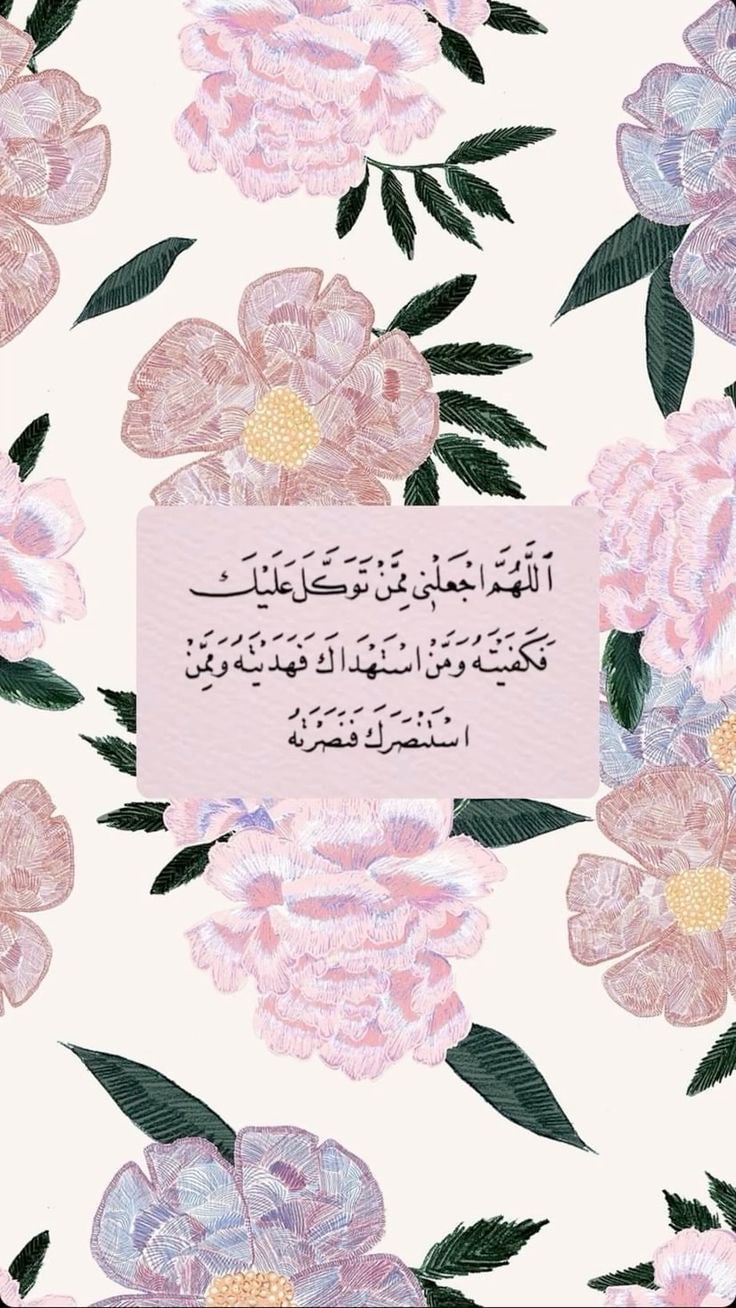 ٱللَّهُمَّ اجْعَلْنِي مِمَّنْ تَوَكَّلَ عَلَيْكَ
فَكَفَيْتَهُ وَمَنْ اسْتَهْدَاكَ فَهَدَيْتَهُ وَمِمَّنْ
اسْتَنْصَرَكَ فَنَصَرْتَهُ